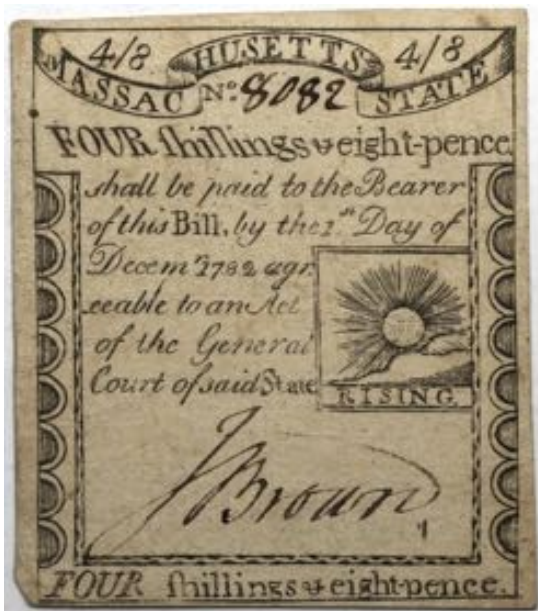 4/8 HUSETTS 4/8
MASSAC No. 8082 STATE
FOUR shillings & eight-pence
shall be paid to the Bearer
of this Bill, by the 1.st Day of
Decemr. 1782 agr
eeable to an Act
of the General
Court of said State
RISING
J Brown
FOUR shillings & eight-pence.